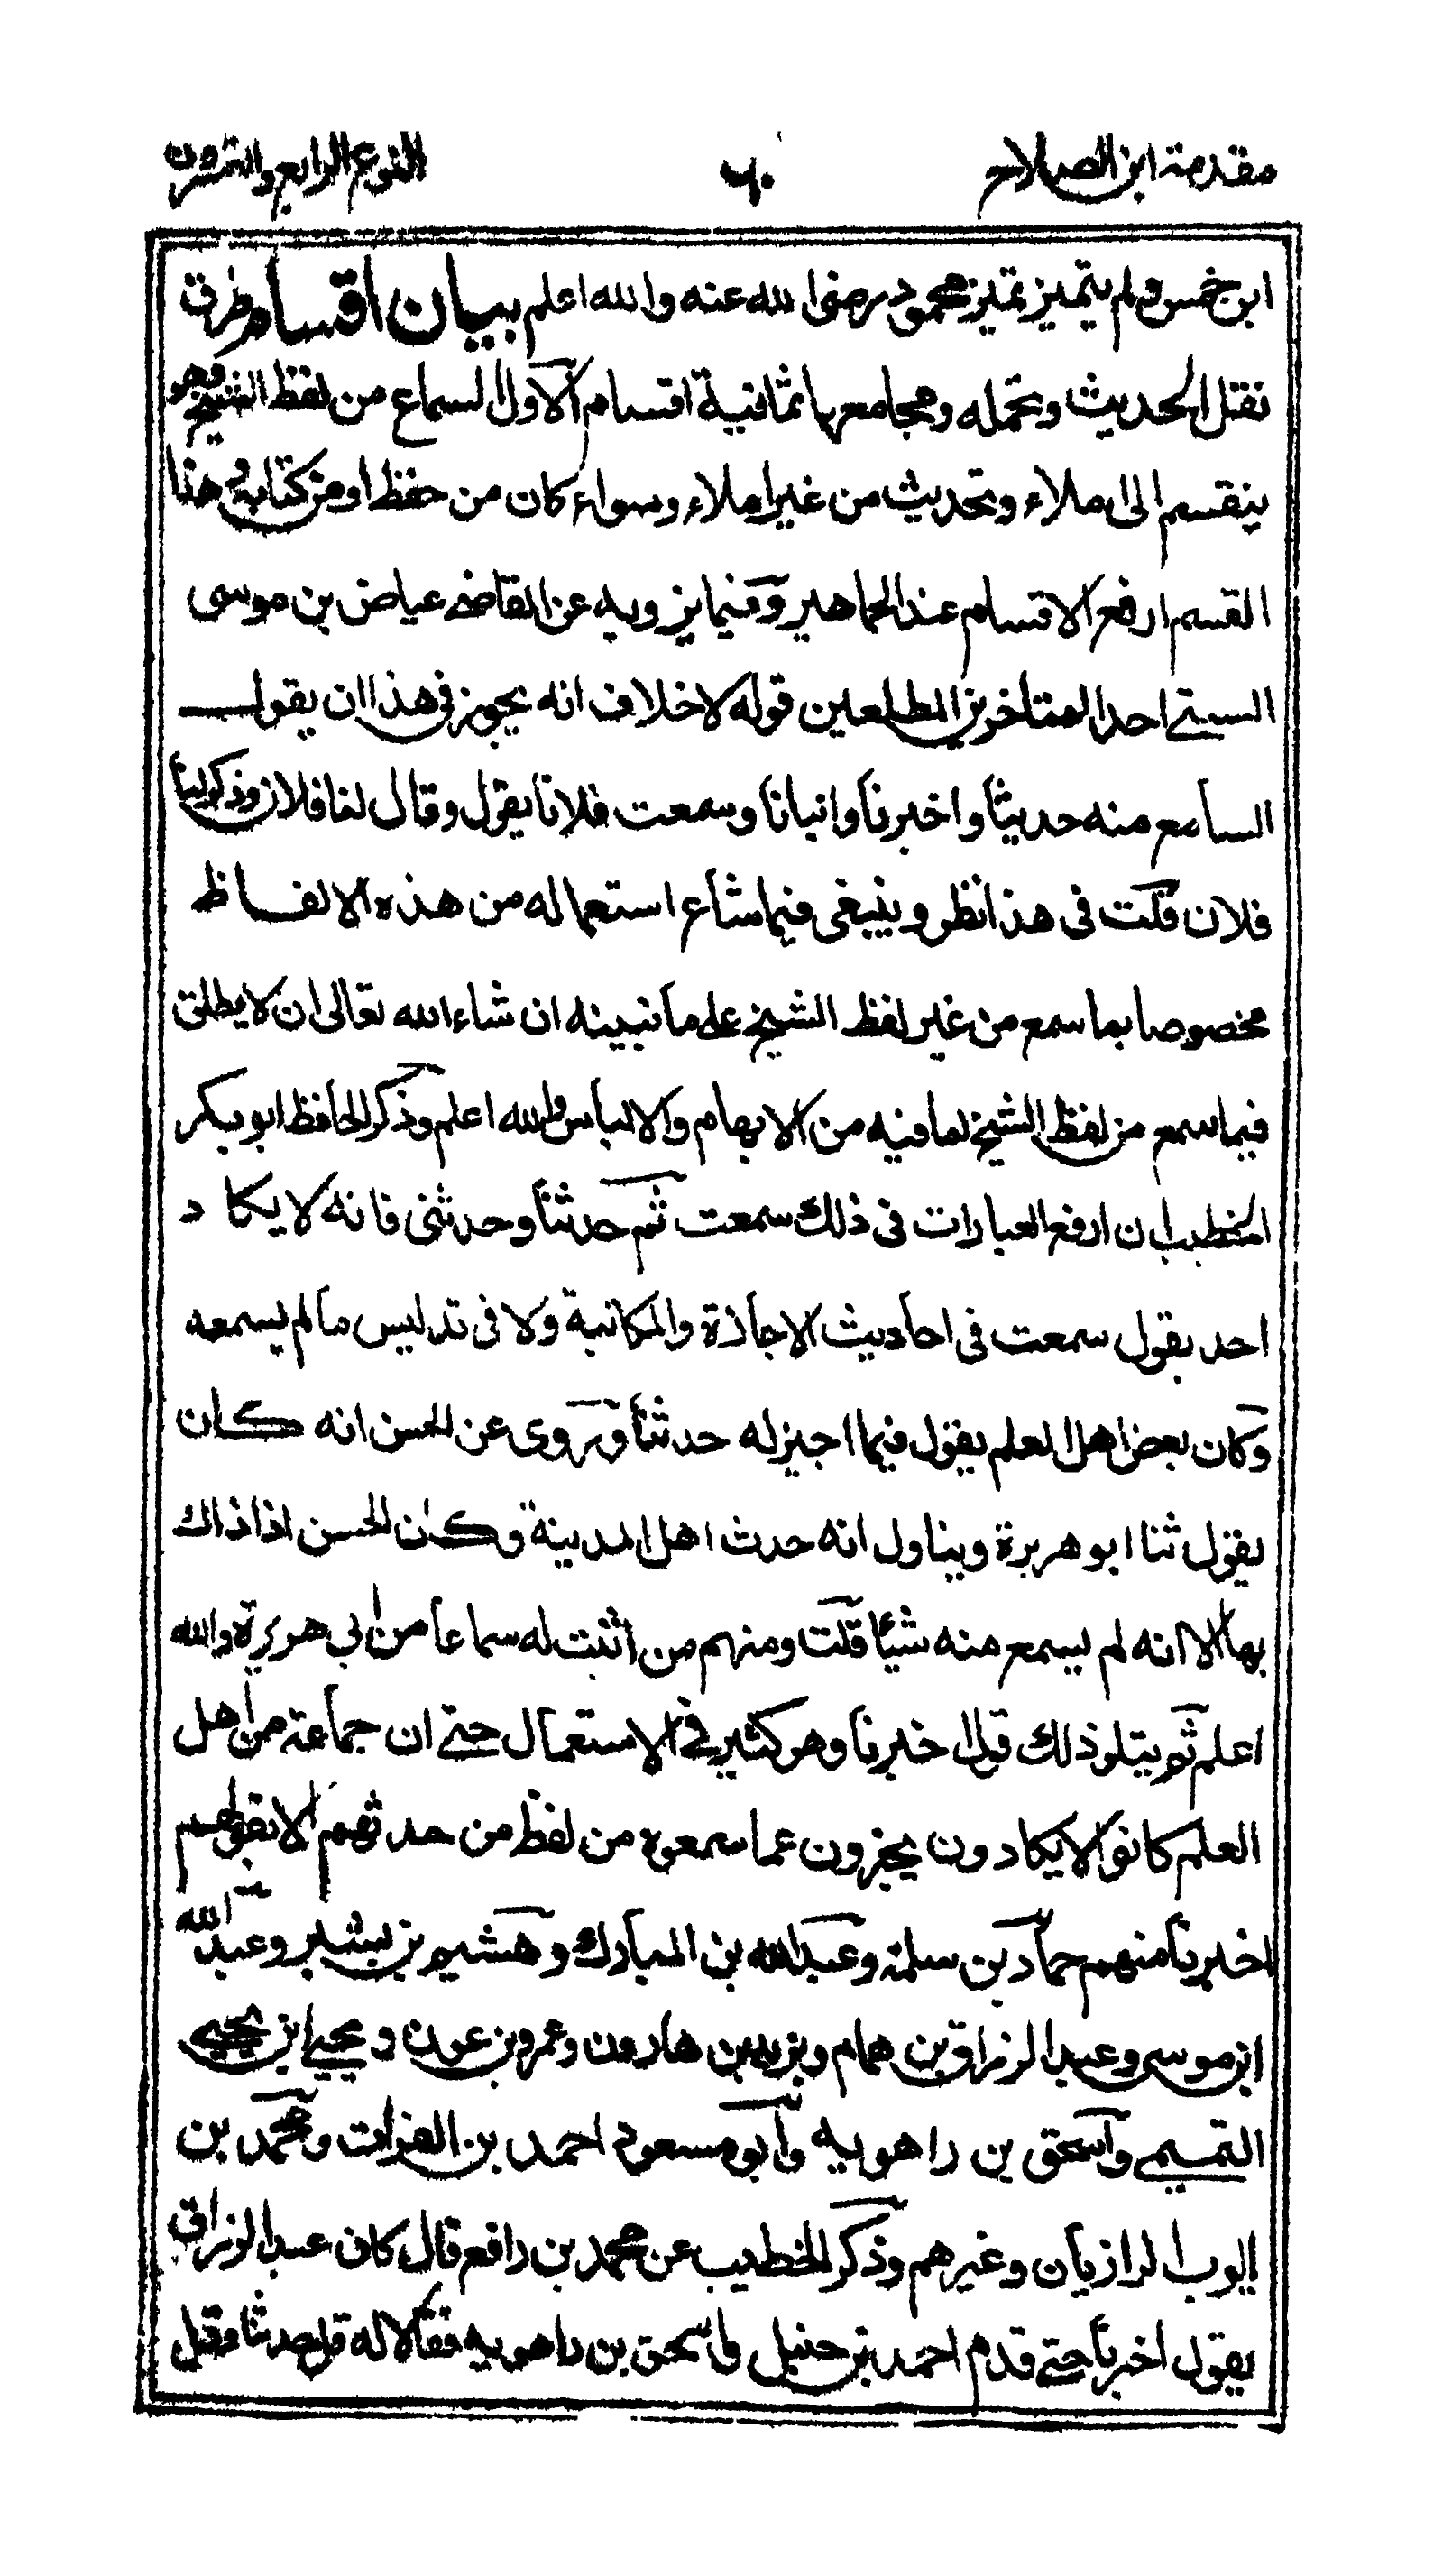 مقدمة ابن الصلاح ٦٠ النوع الرابع والعشرون
ابن خمس ولم يتميز تميز محمود رضى الله عنه والله اعلم بيان اقسام طرق
نقل الحديث وتحمله ومجامعها ثمانية اقسام الاول السماع من لفظ الشيخ وهو
ينقسم الى املاء وتحديث من غير املاء وسواء كان من حفظ او من كتابه وهذا
القسم ارفع الاقسام عند الجماهير وفيما يرويه عن القاضى عياض بن موسى
السبتى احد المتأخرين المطلعين قوله لا خلاف انه يجوز فى هذا ان يقول
السامع منه حديثا واخبرنا وانبانا وسمعت فلانا يقول وقال لنا فلان وذكر لنا
فلان قلت فى هذا نظر وينبغى فيما شاع استعماله من هذه الالفاظ
مخصوصا بما سمع من غير لفظ الشيخ على ما نبينه ان شاء الله تعالى ان لا يطلق
فيما سمع من لفظ الشيخ لما فيه من الايهام والالباس والله اعلم وذكر الحافظ ابو بكر
الخطيب ان ارفع العبارات فى ذلك سمعت ثم حدثنا وحدثنى فانه لا يكاد
احد يقول سمعت فى احاديث الاجازة والمكاتبة ولا فى تدليس ما لم يسمعه
وكان بعض اهل العلم يقول فيما اجيز له حدثنا وروى عن الحسن انه كان
يقول ثنا ابو هريرة ويتاول انه حدث اهل المدينة وكان الحسن اذ ذاك
بها الا انه لم يسمع منه شيئا قلت ومنهم من اثبت له سماعا من ابى هريرة والله
اعلم ثم يتلو ذلك قول اخبرنا وهو كثير فى الاستعمال حتى ان جماعة من اهل
العلم كانوا لا يكادون يخبرون عما سمعوه من لفظ من حدثهم الا بقولهم
اخبرنا منهم حماد بن سلمة وعبد الله بن المبارك وهشيم بن بشير وعبيد الله
ابن موسى وعبد الرزاق بن همام ويزيد بن هارون وعمرو بن عون ويحيى ابن يحيى
التميمى واسحق بن راهويه وابو مسعود احمد بن الفرات ومحمد بن
ايوب الرازيان وغيرهم وذكر الخطيب عن محمد بن رافع قال كان عبد الرزاق
يقول اخبرنا حتى قدم احمد بن حنبل واسحق بن راهويه فقالا له قل حدثنا فقيل